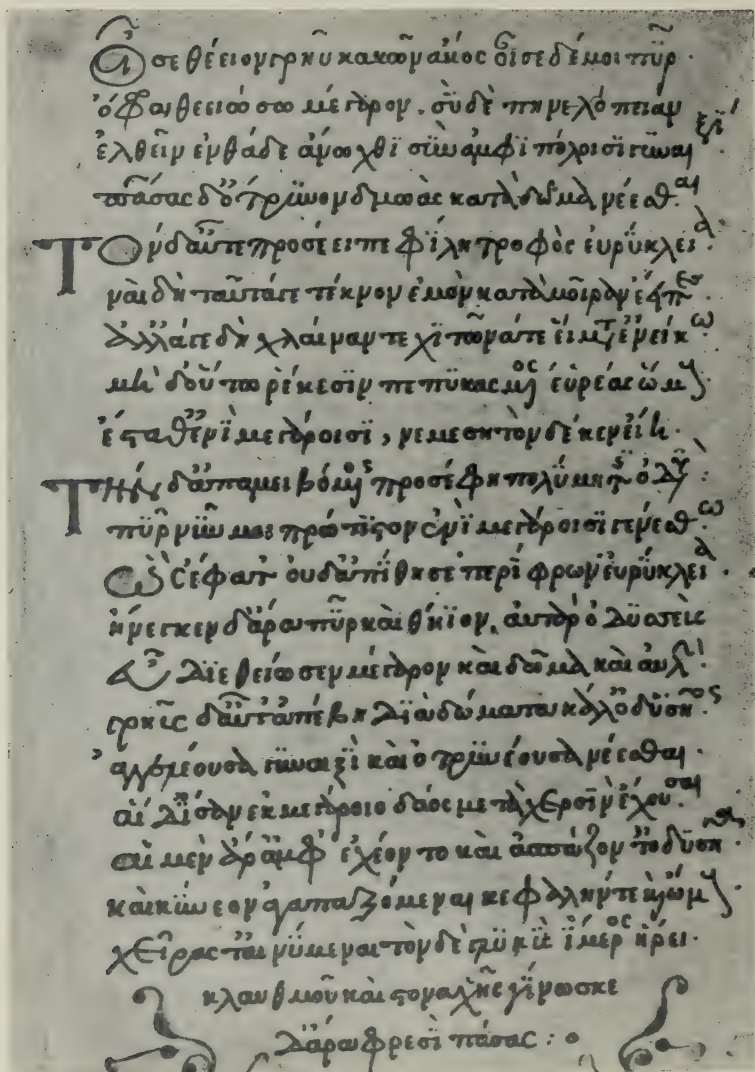 οἶσε θέειον γρηῢ κακῶν ἄκος οἶσε δέ μοι πῦρ.
ὄφρα θεειώσω μέγαρον. σὺ δὲ πηνελόπειαν
ἐλθεῖν ἐνθάδε ἄνωχθι σὺν ἀμφιπόλοισι γυναιξί
πάσας δ' ὄτρυνον δμωὰς κατὰ δῶμα νέεσθαι.
Τὸν δ' αὖτε προσέειπε φίλη τροφὸς εὐρύκλεια.
ναὶ δὴ ταῦτά γε τέκνον ἐμὸν κατὰ μοῖραν ἔειπες.
ἀλλ' ἄγε δὴ χλαῖναν τε χιτῶνά τε εἵματ' ἐνείκω
μὴ δ' οὕτω ῥάκεσιν πεπυκασμένος εὐρέας ὤμους
ἕσταθ' ἐνὶ μεγάροισι, νεμεσητὸν δέ κεν εἴη.
Τὴν δ' ἀπαμειβόμενος προσέφη πολύμητις ὀδυσσεύς:
πῦρ νῦν μοι πρώτιστον ἐνὶ μεγάροισι γενέσθω.
ὣς ἔφατ' οὐδ' ἀπίθησε περίφρων εὐρύκλεια.
ἤνεγκεν δ' ἄρα πῦρ καὶ θήϊον, αὐτὰρ ὀδυσσεὺς
εὖ διεθείωσεν μέγαρον καὶ δῶμα καὶ αὐλήν.
γρηῢς δ' αὖτ' ἀπέβη διὰ δώματα κάλ' ὀδυσῆος.
ἀγγελέουσα γυναιξὶ καὶ ὀτρυνέουσα νέεσθαι.
αἱ δ' ἴσαν ἐκ μεγάροιο δάος μετὰ χερσὶν ἔχουσαι.
αἱ μὲν ἄρ' ἀμφ' ἐχέοντο καὶ ἀσπάζοντ' ὀδυσῆα.
καὶ κύνεον ἀγαπαζόμεναι κεφαλήν τε καὶ ὤμους
χεῖρας τ' αἰνύμεναι τὸν δὲ γλυκὺς ἵμερος ᾕρει.
κλαυθμοῦ καὶ στοναχῆς γίνωσκε
δ' ἄρα φρεσὶ πάσας: